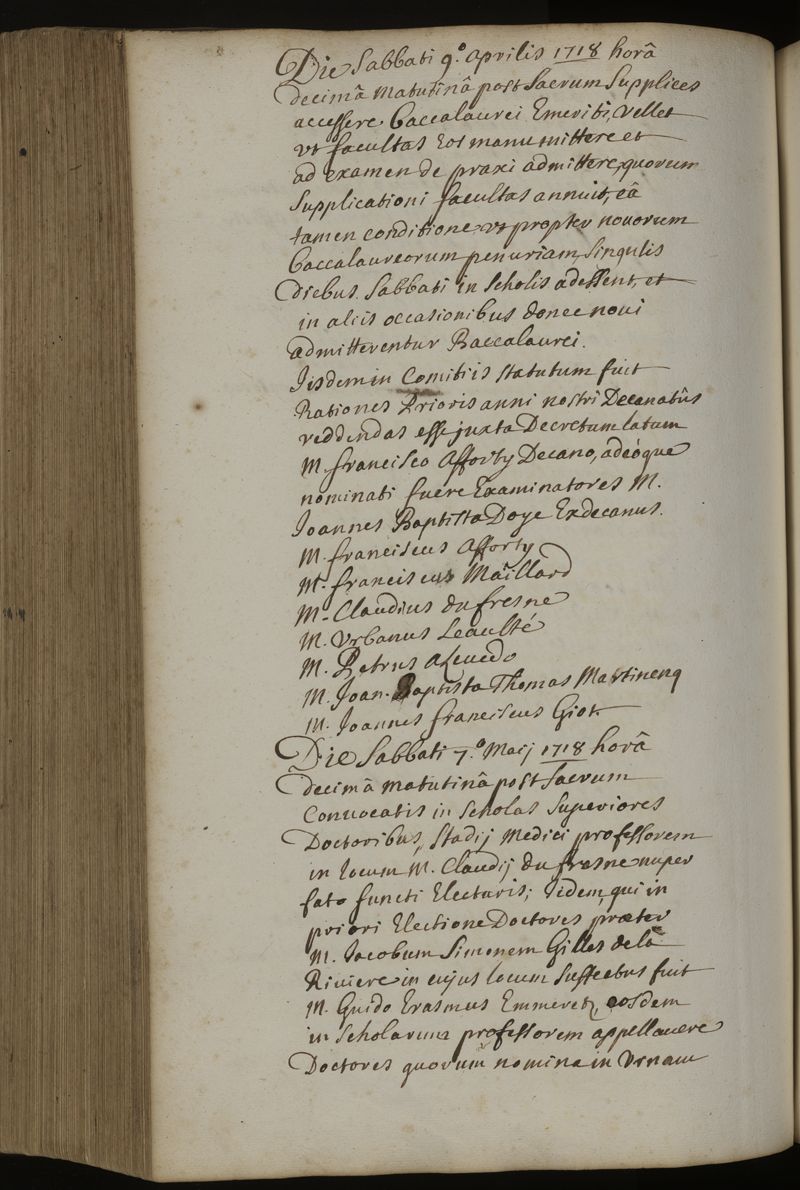 Die Sabbati 9.º aprilis 1718 horâ
decimâ matutinâ post Sacrum Supplices
accessere Baccalaurei Emeriti, vellet
vt facultas Eos manumittere et
ad examen de praxi admittere, quorum
Supplicationi facultas annuit, eâ
tamen conditione vt propter novorum
Baccalaureorum penuriam Singulis
diebus Sabbati in Scholis adessent, et
in aliis occasionibus donec novi
admitterentur Baccalaurei.
Iisdem in Comitiis statutum fuit
Rationes Prioris anni nostri Decanatûs
reddendas esse juxta Decretum latum
M. francisco Afforty Decano, adeóque
nominati fuere Examinatores M.
Joannes Baptista Doye Exdecanus.
M. franciscus Afforty
M. franciscus Maillard
M. Claudius du fresne
M. Vrbanus Leaulté
M. Petrus Azevedo
M. Joan. Baptista Thomas Martinenq
M. Joannes franciscus Giot
Die Sabbati 7.º Maij 1718 horâ
decimâ matutinâ post Sacrum
Convocatis in Scholas Superiores
Doctoribus, Stadij Medici professorem
in locum M. Claudij du fresne nuper
fato functi Electuris; Iidem, qui in
priori Electione Doctores præter
M. Jacobum Simonem Gilles de la
Riviere in cujus locum Suffectus fuit
M. Guido Erasmus Emmerez, eosdem
in Scholarum professorem appellavere
Doctores quorum nomina in Vrnam